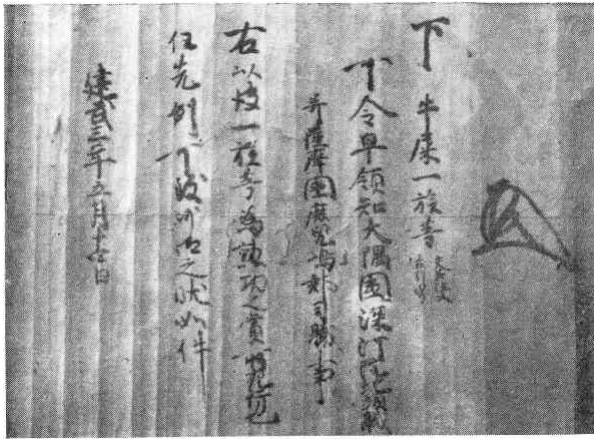 下 牛屎一族等
可令早領知大隅國深河院職
并薩摩國鹿児嶋郡司職事
右以彼一族等為勲功之賞所宛行也
任先例可致沙汰之状如件
建武三年五月日